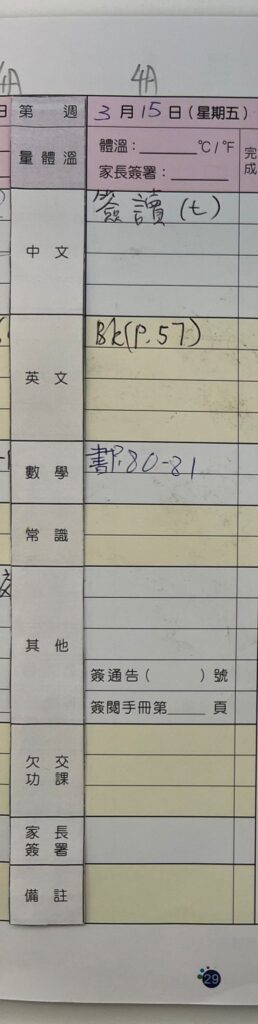 4A
4A
第 週
3 月 15 日 (星期五)
量 體 溫
體溫:______ °C / °F
家長簽署:______
完成
中 文
簽讀 (七)
英 文
Bk(P.57)
數 學
書P.80-81
常 識
其 他
簽通告 ( ) 號
簽閱手冊第____ 頁
欠 交
功 課
家 長
簽 署
備 註
29